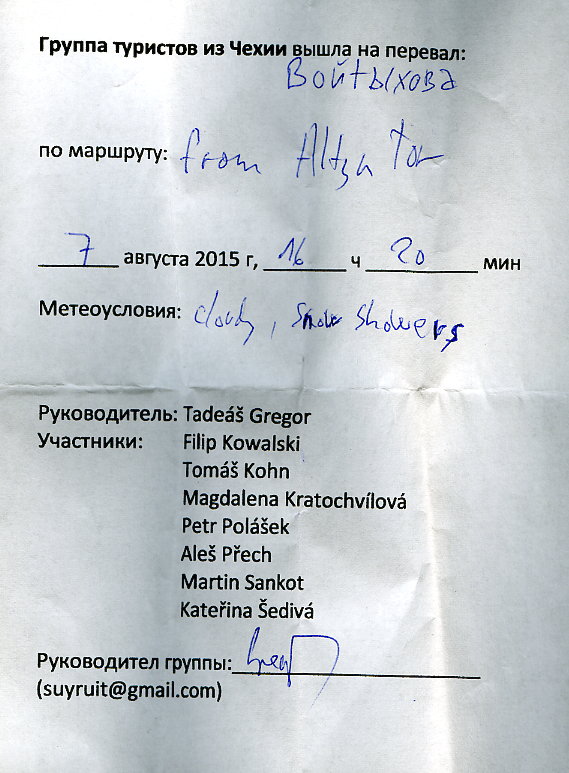 Группа туристов из Чехии вышла на перевал:
Войтыхова
по маршруту: from Altza Tor
7 августа 2015 г, 16 ч 20 мин
Метеоусловия: cloudy, snow showers
Руководитель: Tadeáš Gregor
Участники: Filip Kowalski
Tomáš Kohn
Magdalena Kratochvílová
Petr Polášek
Aleš Přech
Martin Sankot
Kateřina Šedivá
Руководител группы:
(suyruit@gmail.com)